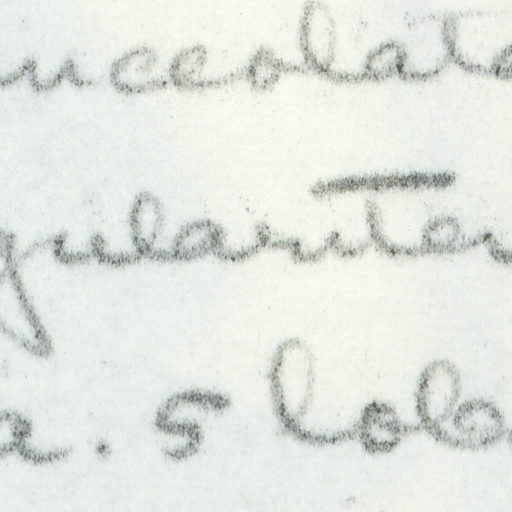 nceolate
gulariter
a. 5 lob